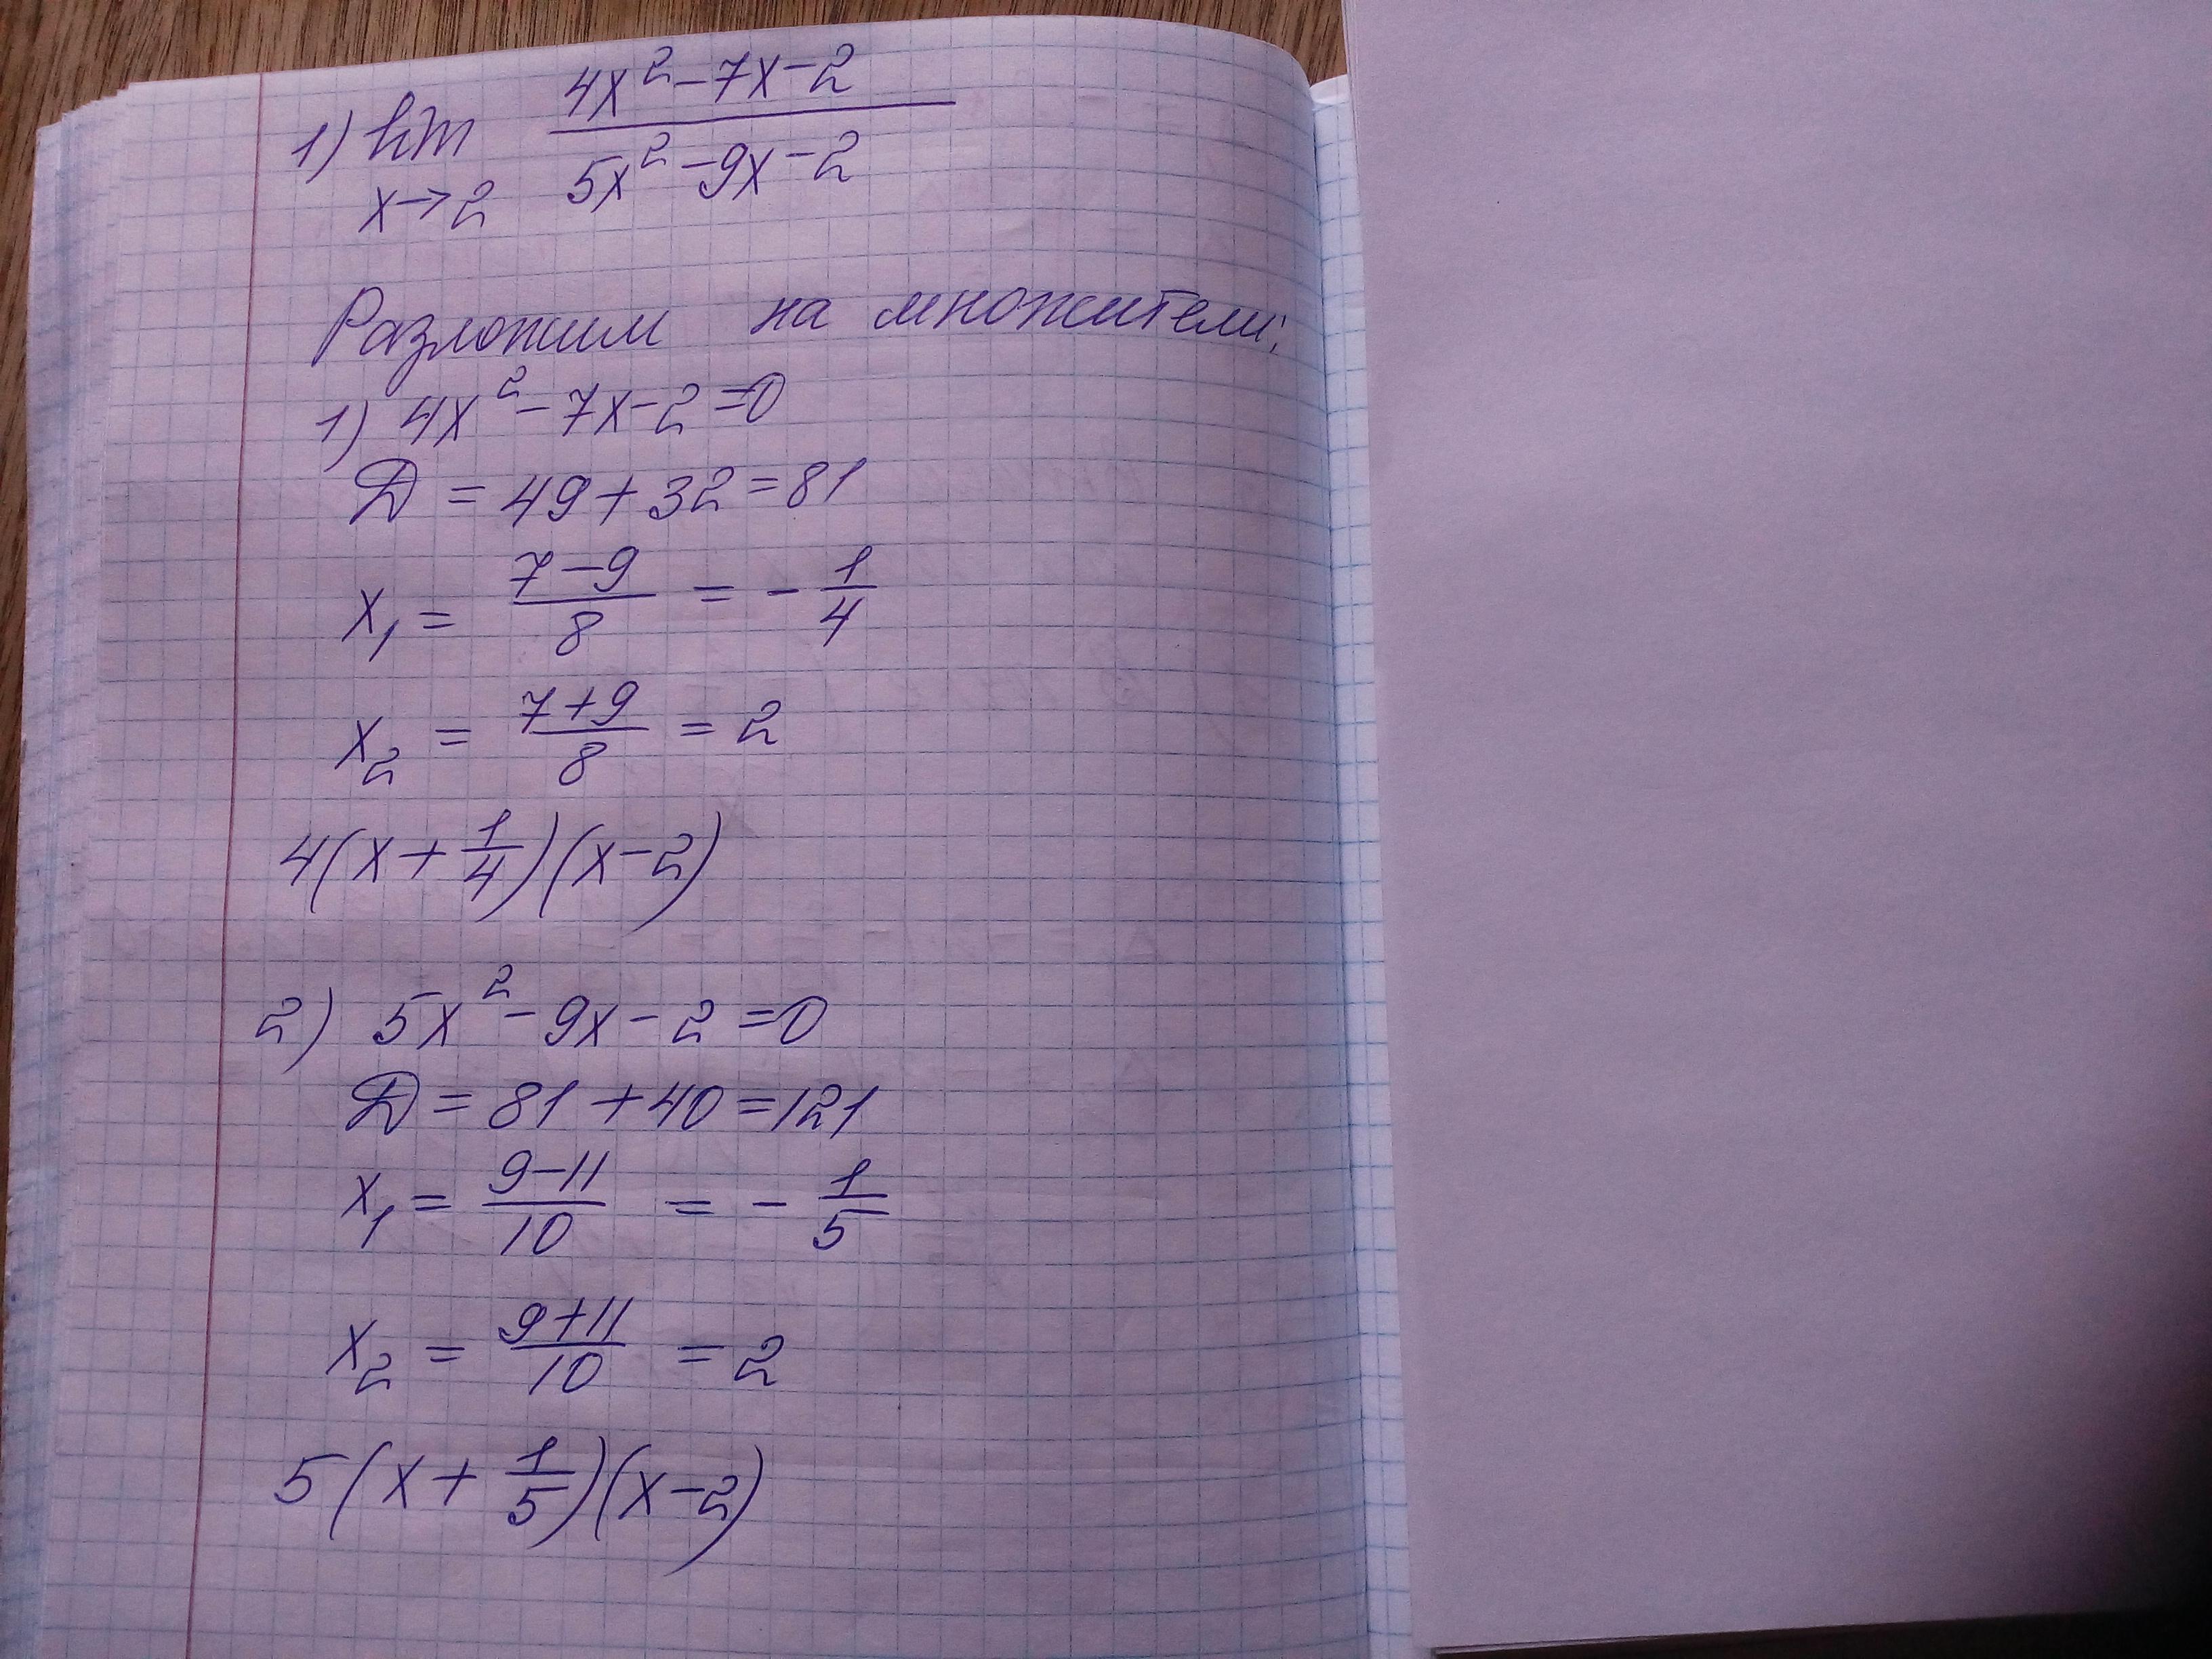 1) lim 4x²-7x-2 / 5x²-9x-2
x→2
Разложим на множители:
1) 4x²-7x-2=0
D = 49+32=81
x₁ = 7-9 / 8 = - 1/4
x₂ = 7+9 / 8 = 2
4(x+1/4)(x-2)
2) 5x²-9x-2=0
D = 81+40=121
x₁ = 9-11 / 10 = - 1/5
x₂ = 9+11 / 10 = 2
5(x+1/5)(x-2)